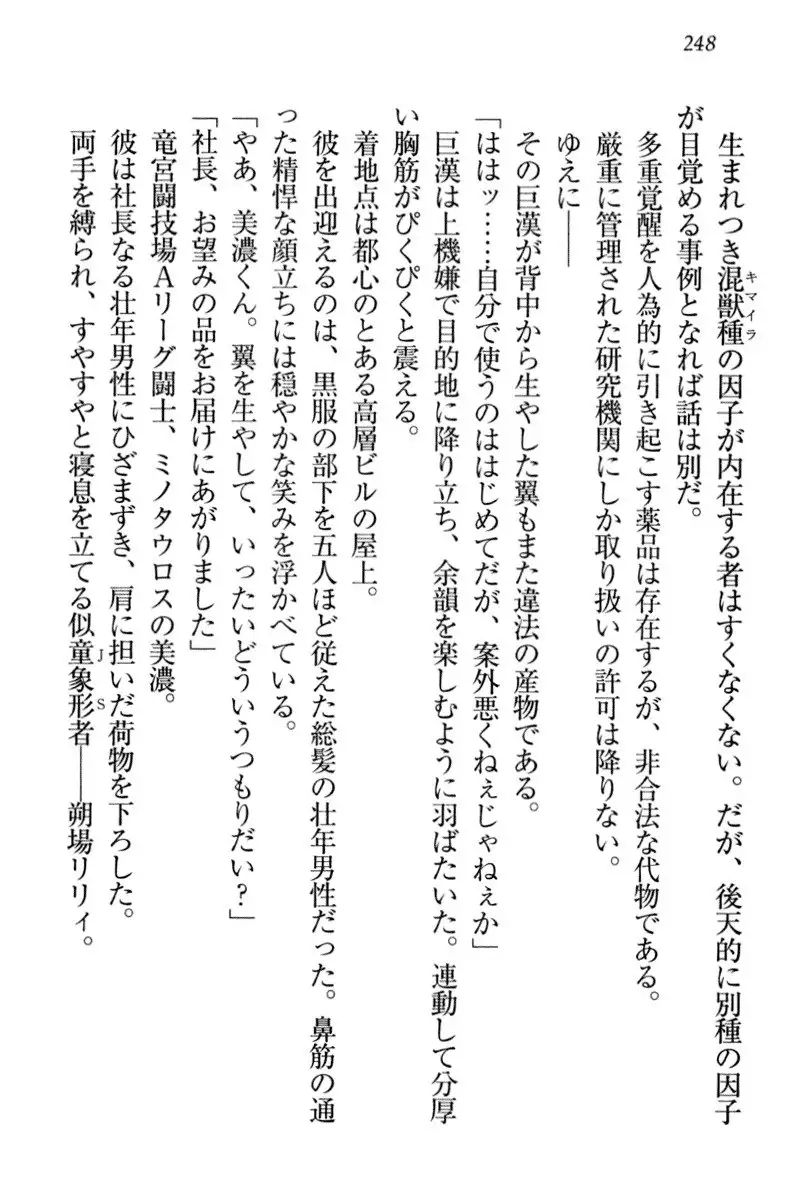 248
生まれつき混獣種の因子が内在する者はすくなくない。だが、後天的に別種の因子
キマイラ
が目覚める事例となれば話は別だ。
多重覚醒を人為的に引き起こす薬品は存在するが、非合法な代物である。
厳重に管理された研究機関にしか取り扱いの許可は降りない。
ゆえに――
その巨漢が背中から生やした翼もまた違法の産物である。
「ははッ……自分で使うのははじめてだが、案外悪くねぇじゃねぇか」
巨漢は上機嫌で目的地に降り立ち、余韻を楽しむように羽ばたいた。連動して分厚
い胸筋がぴくぴくと震える。
着地点は都心のとある高層ビルの屋上。
彼を出迎えるのは、黒服の部下を五人ほど従えた総髪の壮年男性だった。鼻筋の通
った精悍な顔立ちには穏やかな笑みを浮かべている。
「やあ、美濃くん。翼を生やして、いったいどういうつもりだい？」
「社長、お望みの品をお届けにあがりました」
竜宮闘技場Ａリーグ闘士、ミノタウロスの美濃。
彼は社長なる壮年男性にひざまずき、肩に担いだ荷物を下ろした。
両手を縛られ、すやすやと寝息を立てる似童象形者――朔場リリィ。
ＪＳ